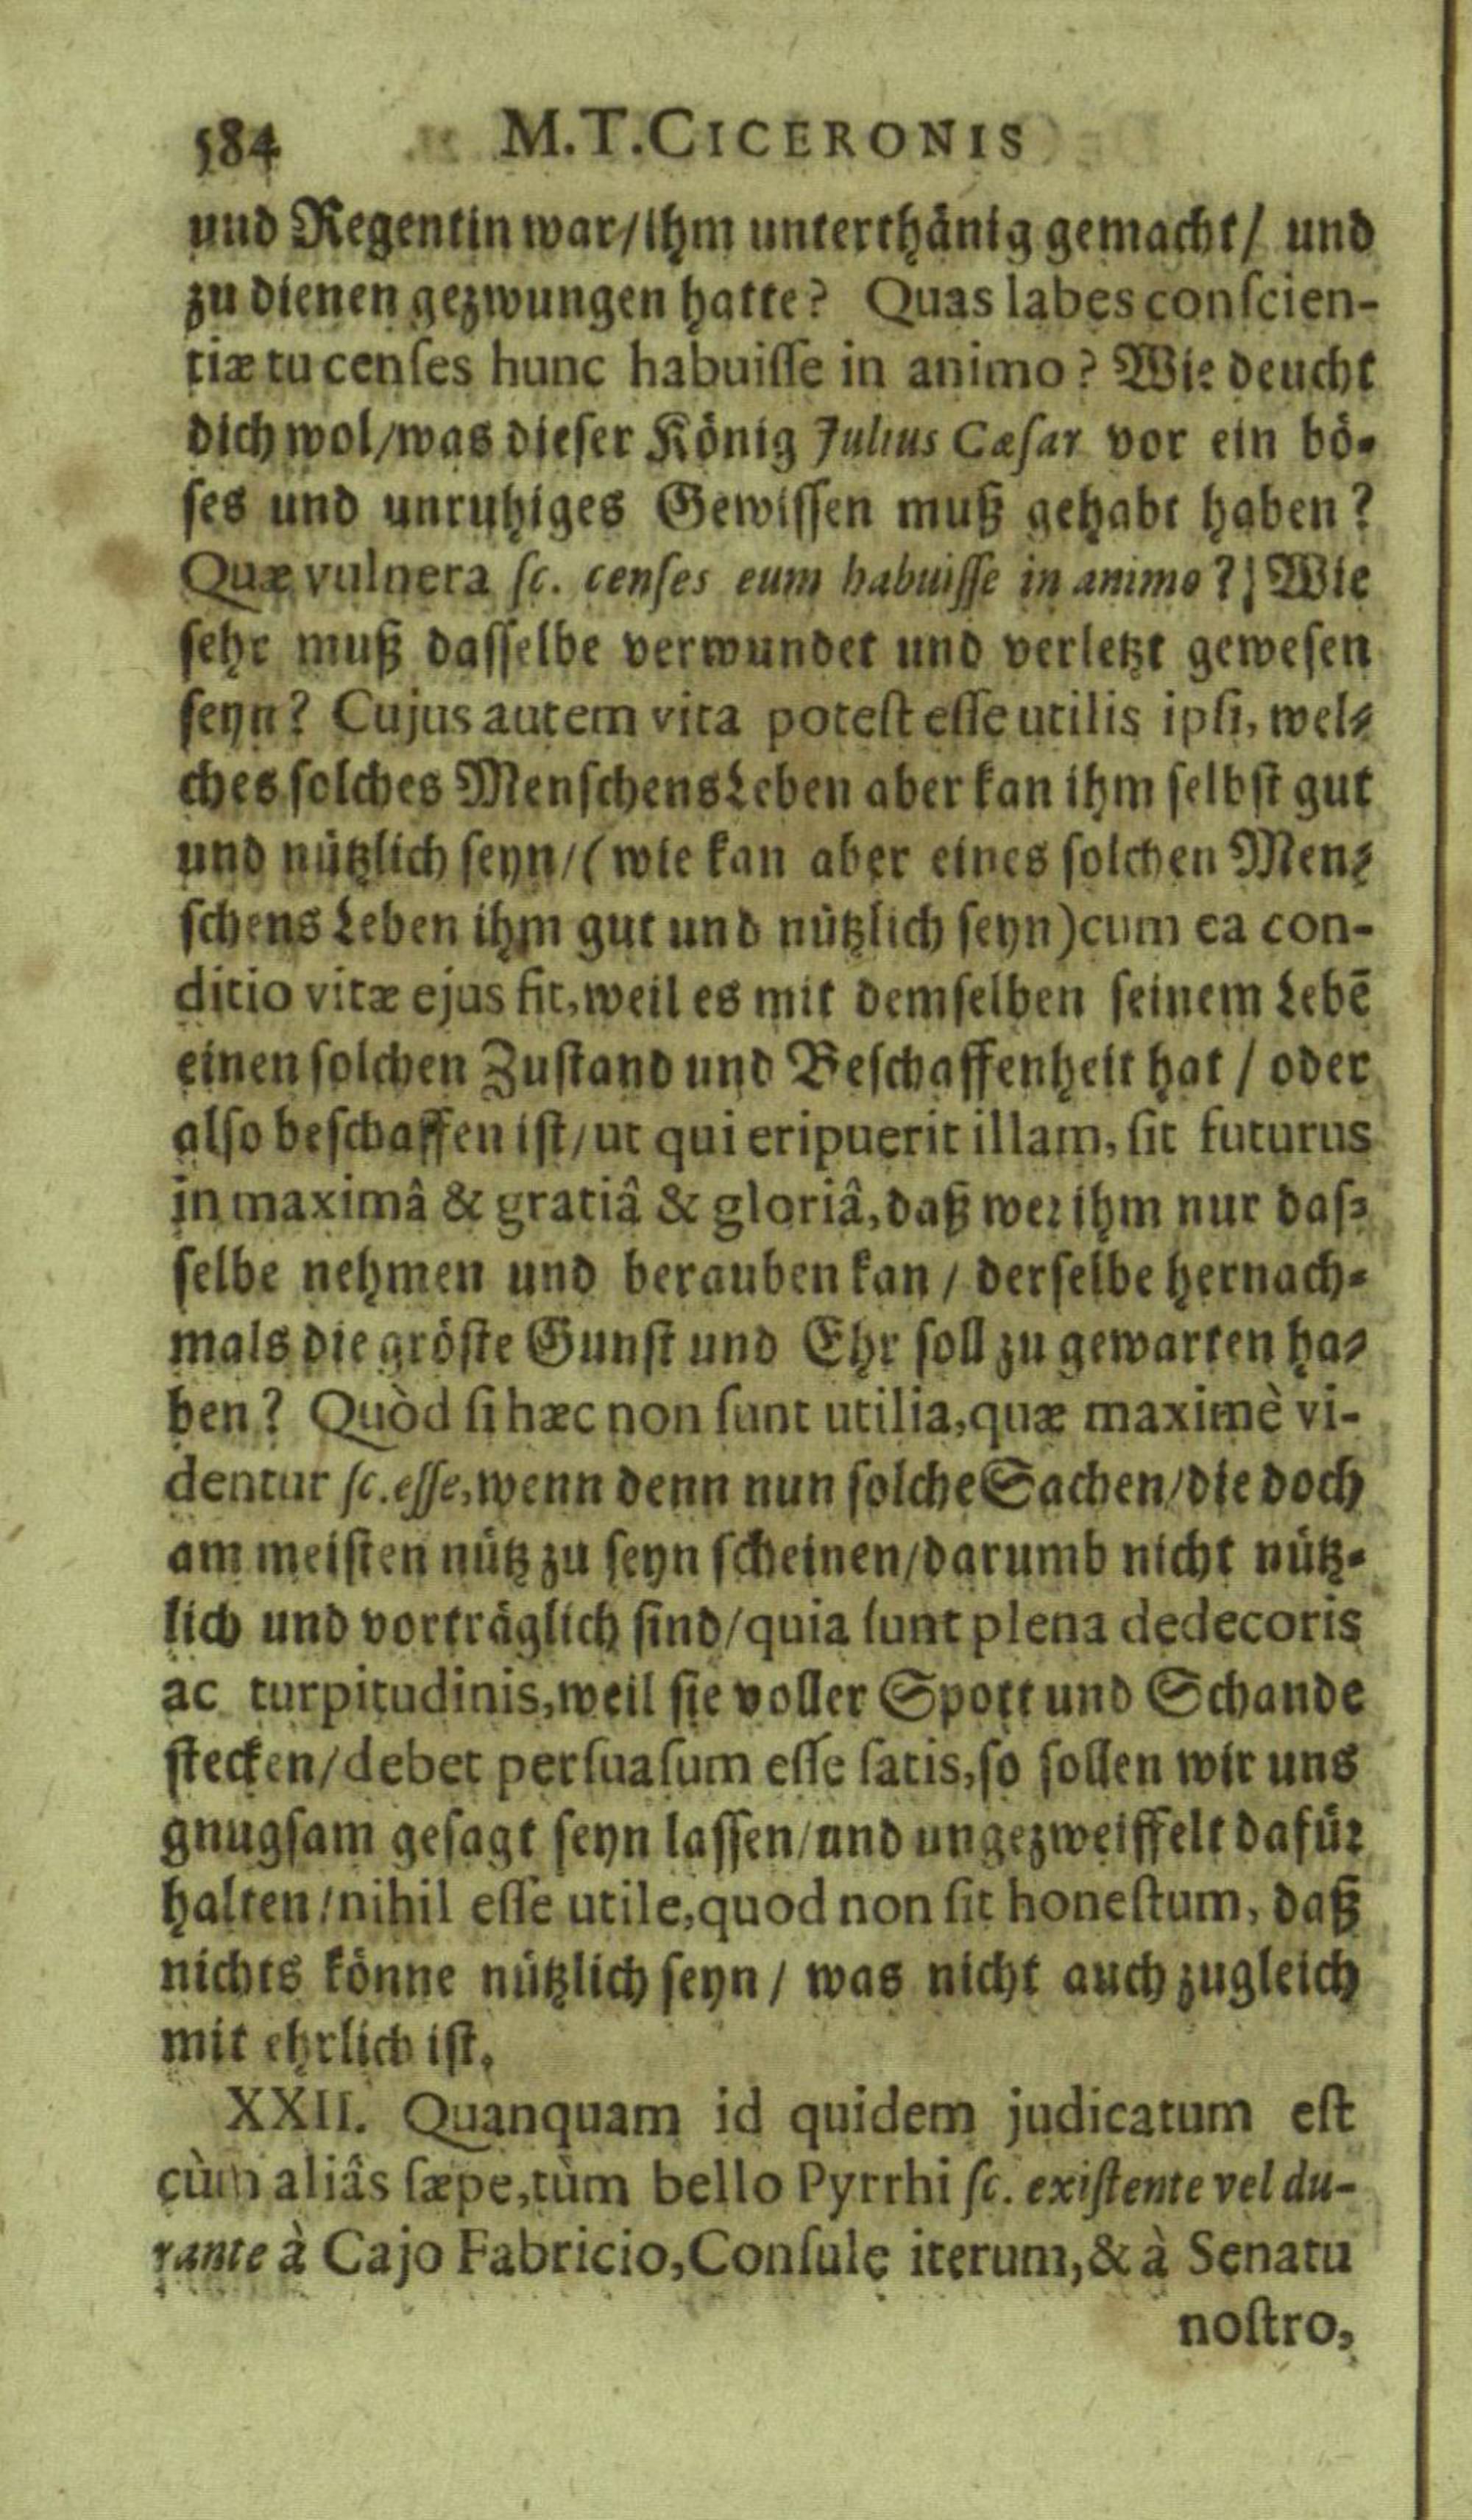 584 M.T.CICERONIS
und Regentin war/ihm unterthänig gemacht/ und
zu dienen gezwungen hatte? Quas labes conſcien-
tiæ tu cenſes hunc habuiſſe in animo? Wie deucht
dich wol/was dieſer König Julius Cæſar vor ein bö-
ſes und unruhiges Gewiſſen muß gehabt haben?
Quæ vulnera ſc. cenſes eum habuiſſe in animo?] Wie
ſehr muß daſſelbe verwundet und verletzt geweſen
ſeyn? Cujus autem vita poteſt eſſe utilis ipſi, wel-
ches ſolches Menſchens Leben aber kan ihm ſelbſt gut
und nützlich ſeyn/(wie kan aber eines ſolchen Men-
ſchens Leben ihm gut und nützlich ſeyn)cum ea con-
ditio vitæ ejus ſit, weil es mit demſelben ſeinem Lebē
einen ſolchen Zuſtand und Beſchaffenheit hat / oder
alſo beſchaffen iſt/ut qui eripuerit illam, ſit futurus
in maximâ & gratiâ & gloriâ, daß wer ihm nur daſ-
ſelbe nehmen und berauben kan / derſelbe hernach-
mals die gröſte Gunſt und Ehr ſoll zu gewarten ha-
ben? Quòd ſi hæc non ſunt utilia, quæ maximè vi-
dentur ſc. eſſe, wenn denn nun ſolche Sachen/die doch
am meiſten nütz zu ſeyn ſcheinen/darumb nicht nütz-
lich und vorträglich ſind/quia ſunt plena dedecoris
ac turpitudinis, weil ſie voller Spott und Schande
ſtecken/debet perſuaſum eſſe ſatis, ſo ſollen wir uns
gnugſam geſagt ſeyn laſſen/und ungezweiffelt dafür
halten/nihil eſſe utile, quod non ſit honeſtum, daß
nichts könne nützlich ſeyn/ was nicht auch zugleich
mit ehrlich iſt.
XXII. Quanquam id quidem judicatum eſt
cùm aliâs ſæpe, tùm bello Pyrrhi ſc. exiſtente vel du-
rante à Cajo Fabricio, Conſule iterum, & à Senatu
noſtro,